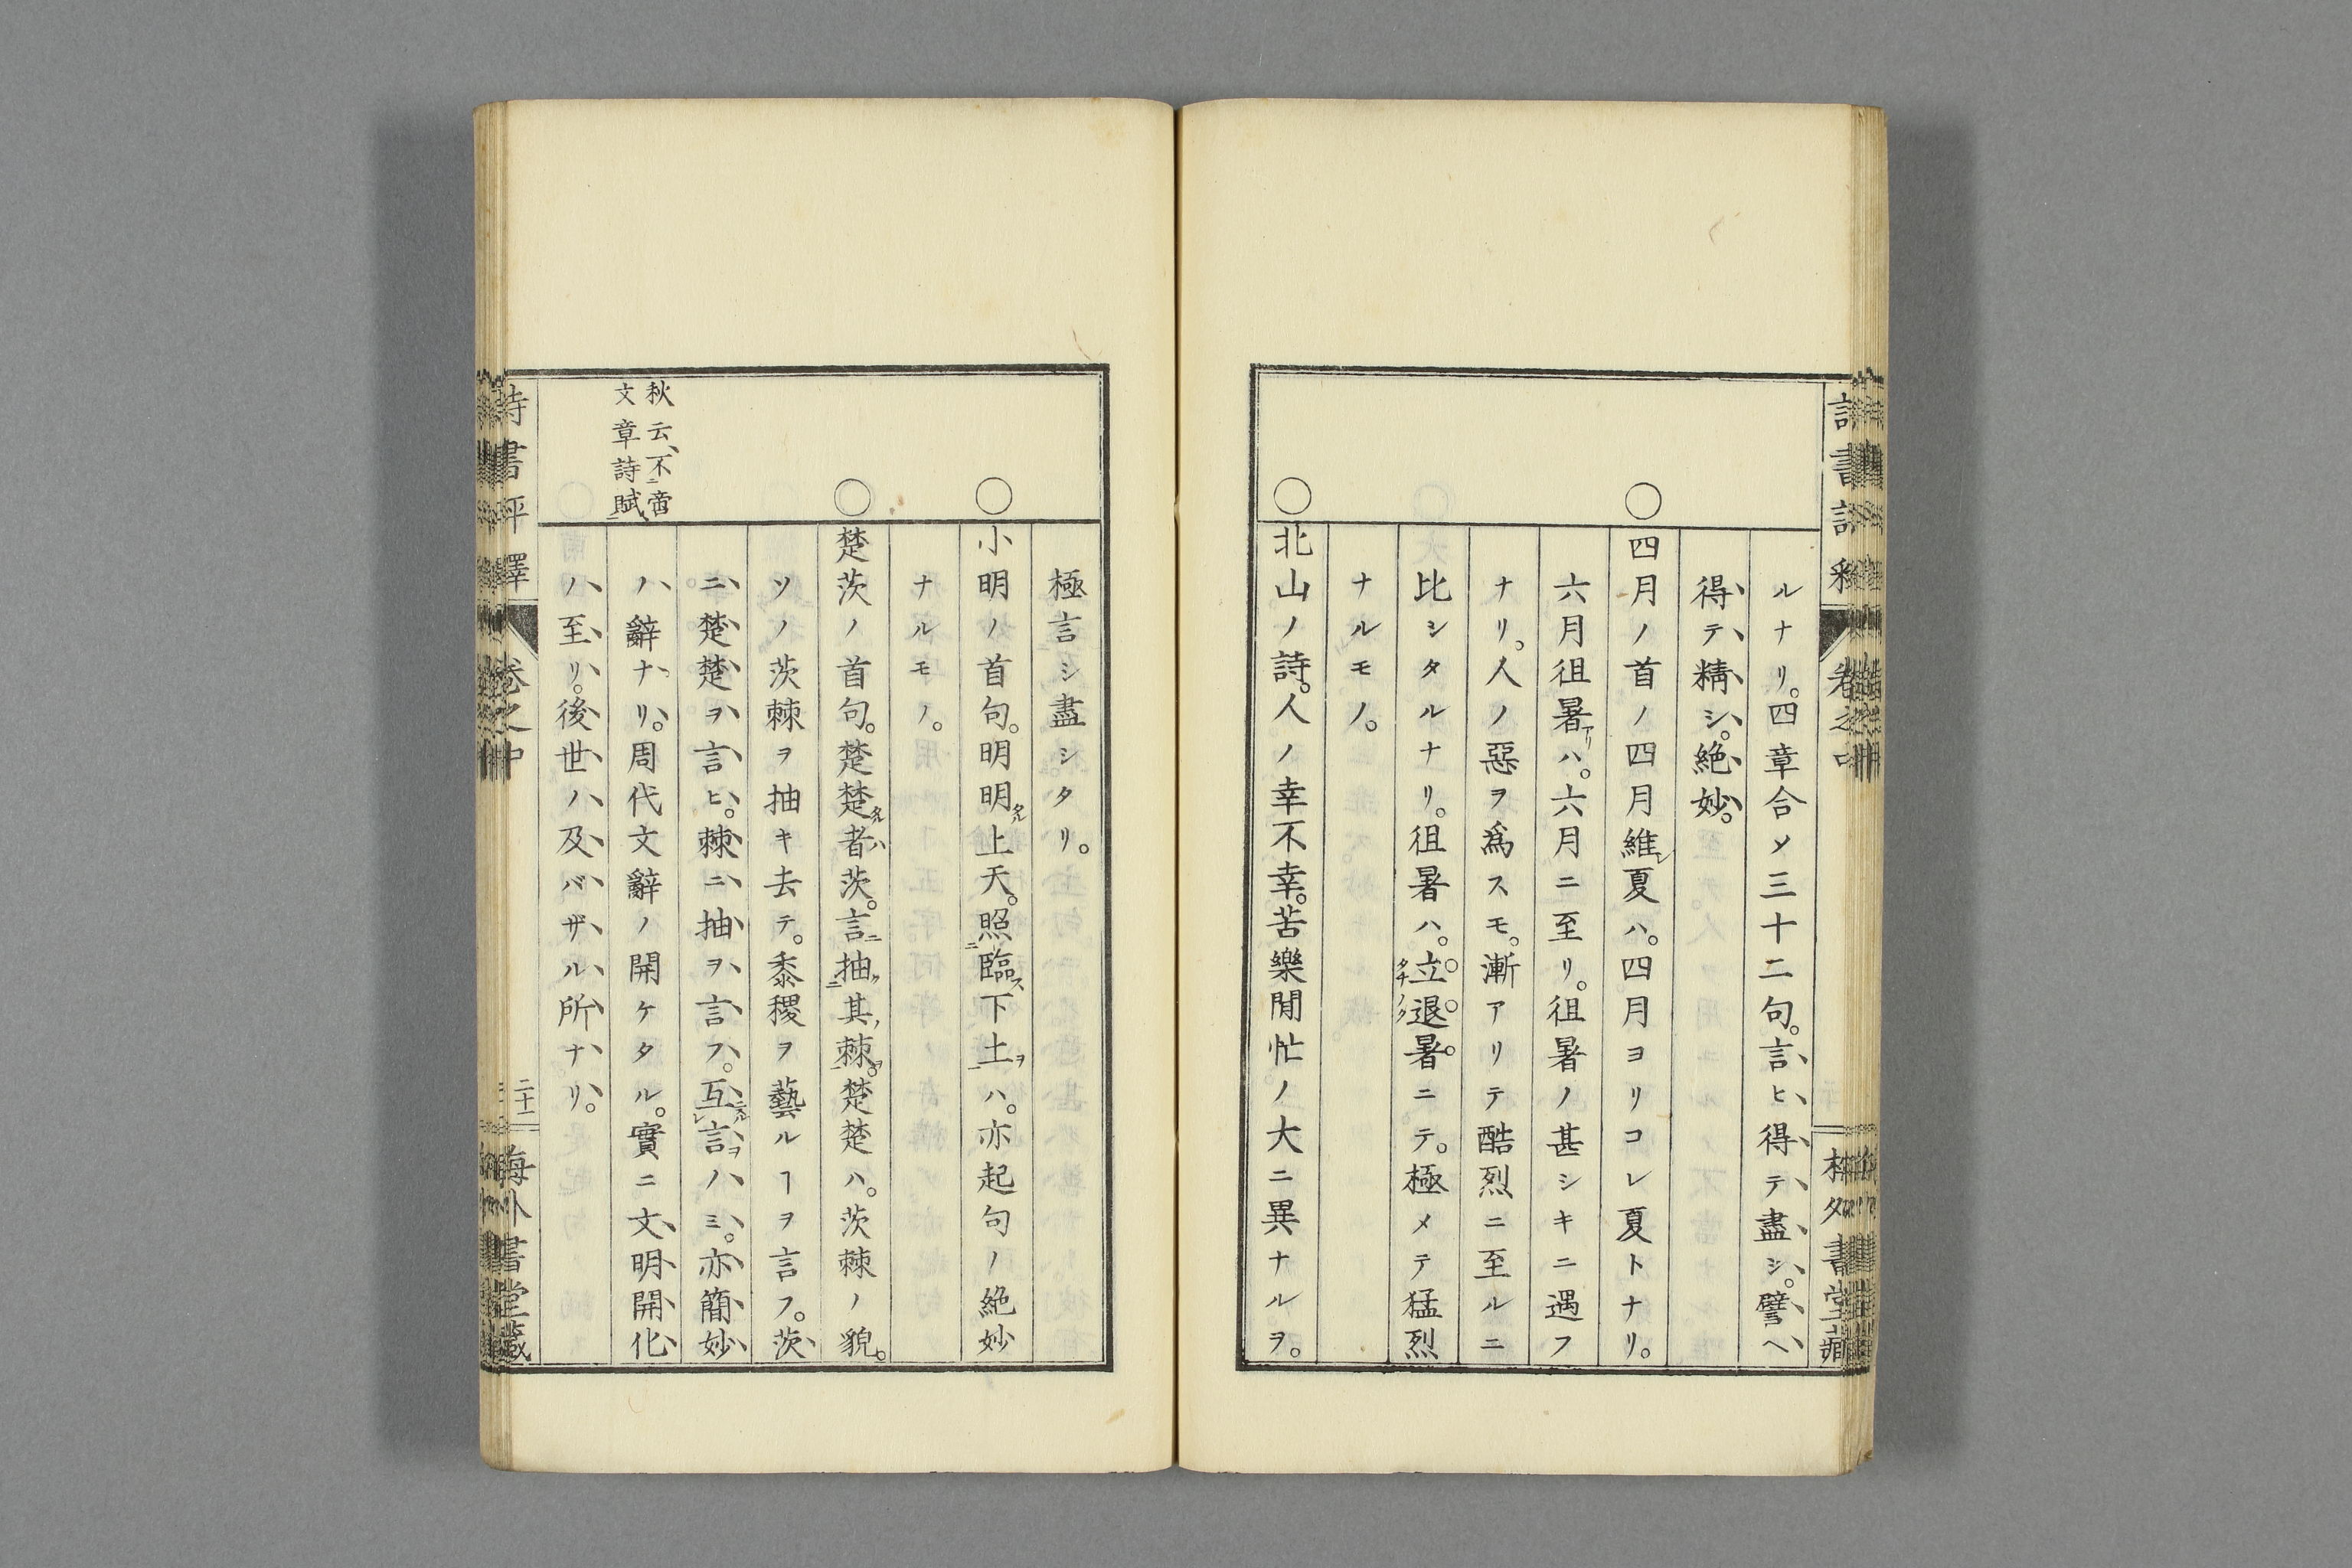 ルナリ。四章合メ三十二句。言ヒ得テ盡シ。譬ヘ
得テ精シ。絶妙。
○四月ノ首ノ四月維レ夏ハ。四月ヨリコレ夏トナリ。
六月徂暑アリハ。六月ニ至リ。徂暑ノ甚シキニ遇フ
ナリ。人ノ惡ヲ爲スモ。漸アリテ酷烈ニ至ルニ
比シタルナリ。徂暑ハ。立退暑ニテ。極メテ猛烈
タチノク
ナルモノ。
○北山ノ詩。人ノ幸不幸。苦樂閒忙ノ大ニ異ナルヲ。
極言シ盡シタリ。
○小明ノ首句。明明タル上天。照二臨ス下土一ヲハ。亦起句ノ絶妙
ナルモノ。
○楚茨ノ首句。楚楚タル者ハ茨。言ニ抽二ク其ノ棘一ヲ。楚楚ハ。茨棘ノ貌。
ソノ茨棘ヲ抽キ去テ。黍稷ヲ藝ルヿヲ言フ。茨
ニ楚楚ヲ言ヒ。棘ニ抽ヲ言フ。互ニスルレ言ヲノミ。亦簡妙
秋云、不二啻
文章詩賦一
ノ辭ナリ。周代文辭ノ開ケタル。實ニ文明開化
ノ至リ。後世ノ及バザル所ナリ。
詩書評釋 卷之中 二十二 海外書堂藏